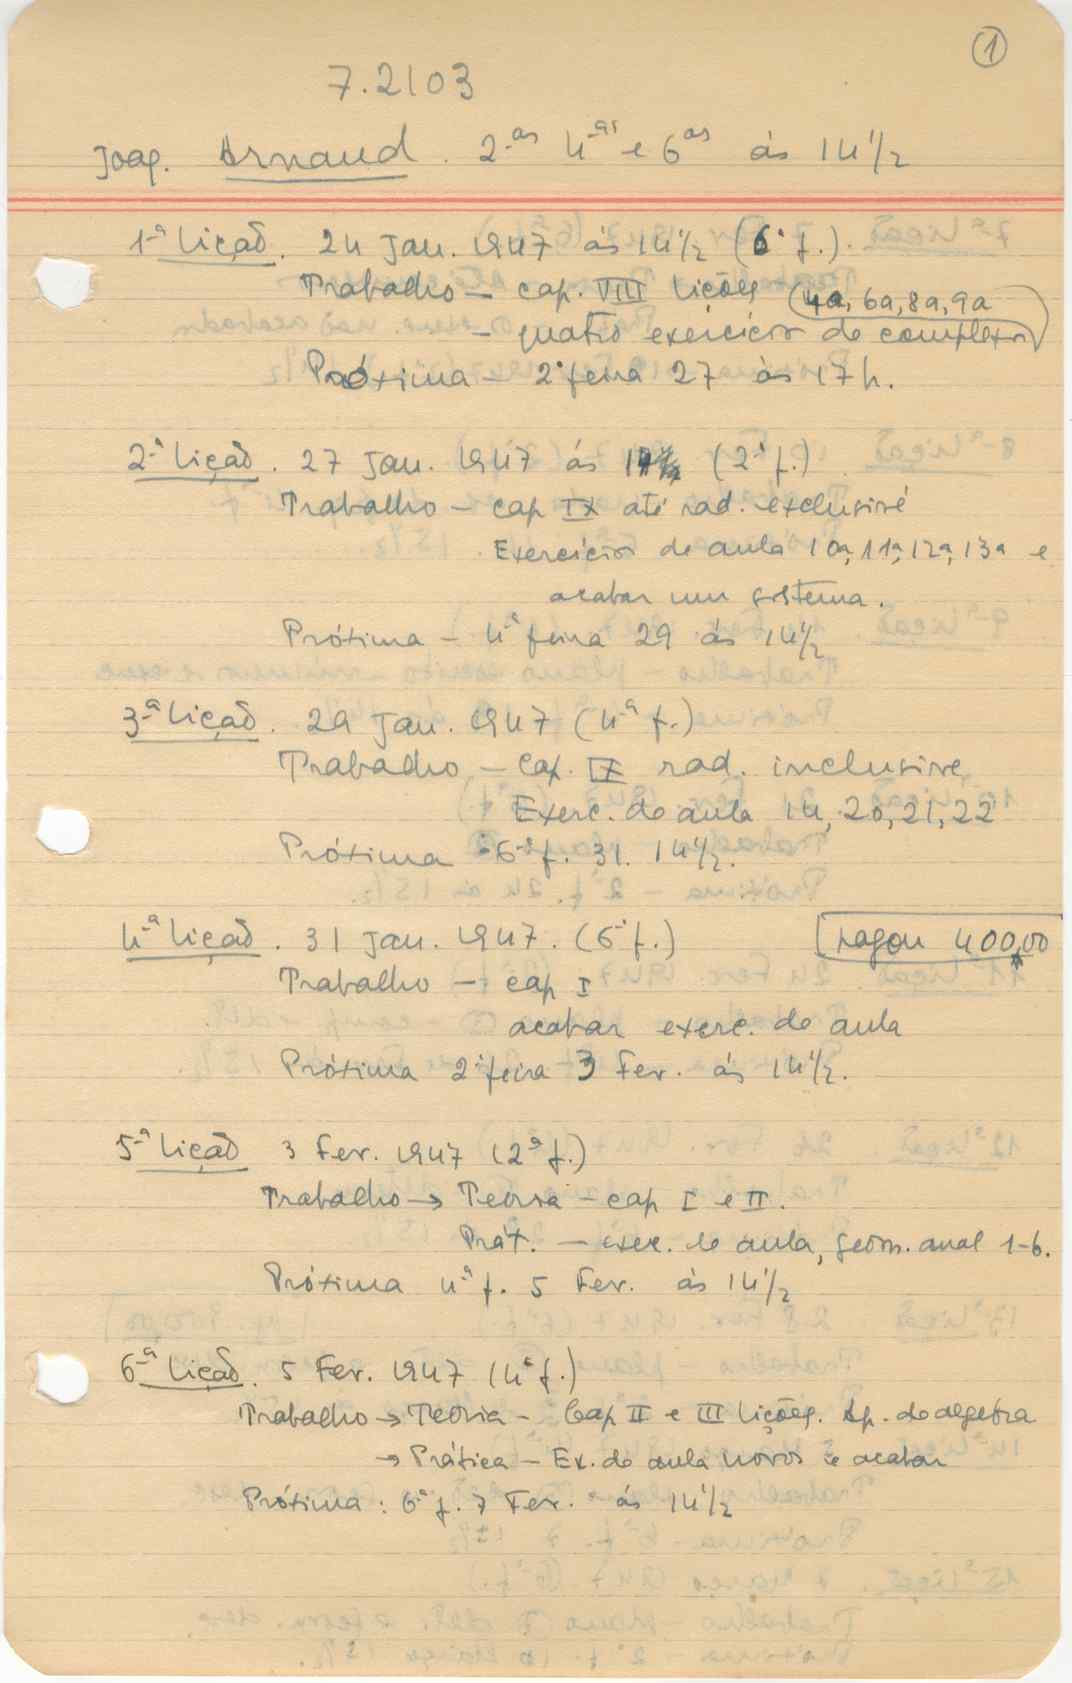 1
7.2103
Joaq. Arnaud. 2.as 4.as e 6as às 14 1/2
1.ª Lição. 24 Jan. 1947 às 14 1/2 (6ª f.).
Trabalho — cap. VIII Lições (4a, 6a, 8a, 9a
— quatro exercícios de complexos)
Próxima — 2ª feira 27 às 17 h.
2.ª Lição. 27 Jan. 1947 às (2ª f.)
Trabalho — cap IX até rad. exclusivé
Exercícios de aula 10a, 11a, 12a, 13a e
acabar um sistema.
Próxima — 4ª feira 29 às 14 1/2
3.ª Lição. 29 Jan. 1947 (4ª f.)
Trabalho — Cap. IX rad. inclusive
Exerc. de aula 14, 20, 21, 22
Próxima 6ª f. 31. 14 1/2.
4.ª Lição. 31 Jan. 1947. (6ª f.)
Pagou 400,00
Trabalho — cap I
acabar exerc. de aula
Próxima 2ª feira 3 Fev. às 14 1/2.
5.ª Lição 3 Fev. 1947 (2ª f.)
Trabalho → Teoria — cap I e II.
Prát. — exer. de aula, geom. anal 1-6.
Próxima 4ª f. 5 Fev. às 14 1/2
6.ª Lição. 5 Fev. 1947 (4ª f.)
Trabalho → Teoria — Cap II e III Lições. Ap. de algebra
→ Prática — Ex. de aula novos e acabar
Próxima: 6ª f. 7 Fev. às 14 1/2